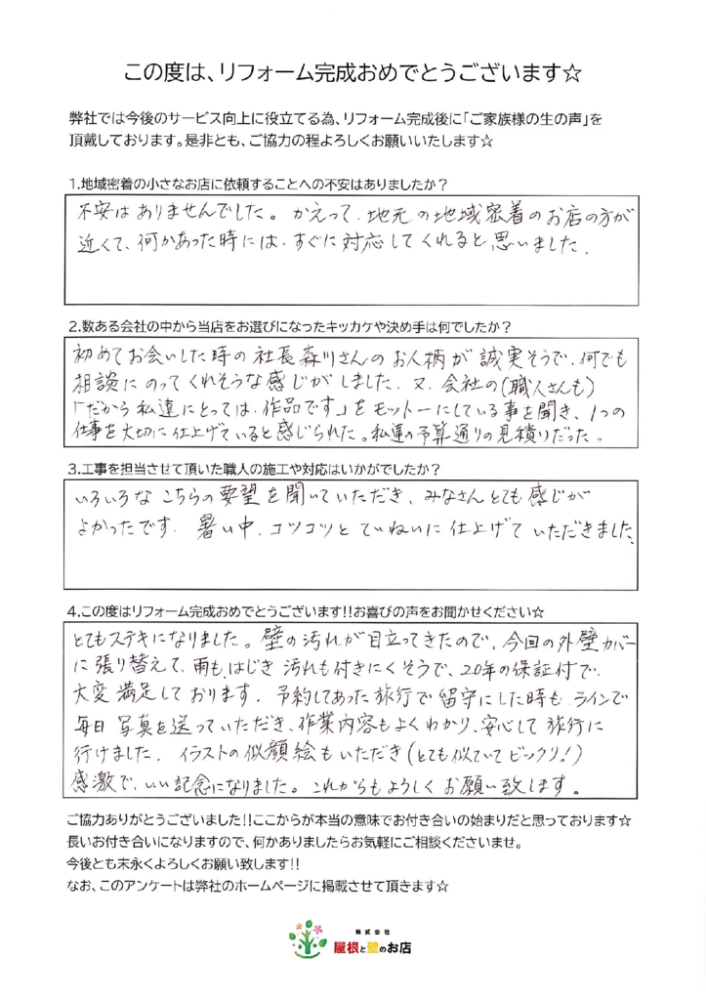 この度は、リフォーム完成おめでとうございます☆
弊社では今後のサービス向上に役立てる為、リフォーム完成後に「ご家族様の生の声」を
頂戴しております。是非とも、ご協力の程よろしくお願いいたします☆
1.地域密着の小さなお店に依頼することへの不安はありましたか？
不安はありませんでした。かえって、地元の地域密着のお店の方が
近くて、何かあった時には、すぐに対応してくれると思いました.
2.数ある会社の中から当店をお選びになったキッカケや決め手は何でしたか？
初めてお会いした時の社長森川さんのお人柄が誠実そうで、何でも
相談にのってくれそうな感じがしました. 又、会社の(職人さんも)
「だから私達にとっては、作品です」をモットーにしている事を聞き、1つの
仕事を大切に仕上げていると感じられた。私達の予算通りの見積りだった。
3.工事を担当させて頂いた職人の施工や対応はいかがでしたか？
いろいろなこちらの要望を聞いていただき、みなさんとても感じが
よかったです. 暑い中、コツコツとていねいに仕上げていただきました.
4.この度はリフォーム完成おめでとうございます!!お喜びの声をお聞かせください☆
とてもステキになりました。壁の汚れが目立ってきたので、今回の外壁カバー
に張り替えて、雨もはじき汚れも付きにくそうで、20年の保証付で、
大変満足しております. 予約してあった旅行で留守にした時も、ラインで
毎日写真を送っていただき、作業内容もよくわかり、安心して旅行に
行けました. イラストの似顔絵もいただき(とても似ていてビックリ!)
感激で、いい記念になりました。これからもよろしくお願い致します。
ご協力ありがとうございました!!ここからが本当の意味でお付き合いの始まりだと思っております☆
長いお付き合いになりますので、何かありましたらお気軽にご相談くださいませ。
今後とも末永くよろしくお願い致します!!
なお、このアンケートは弊社のホームページに掲載させて頂きます☆
株式会社
屋根と壁のお店